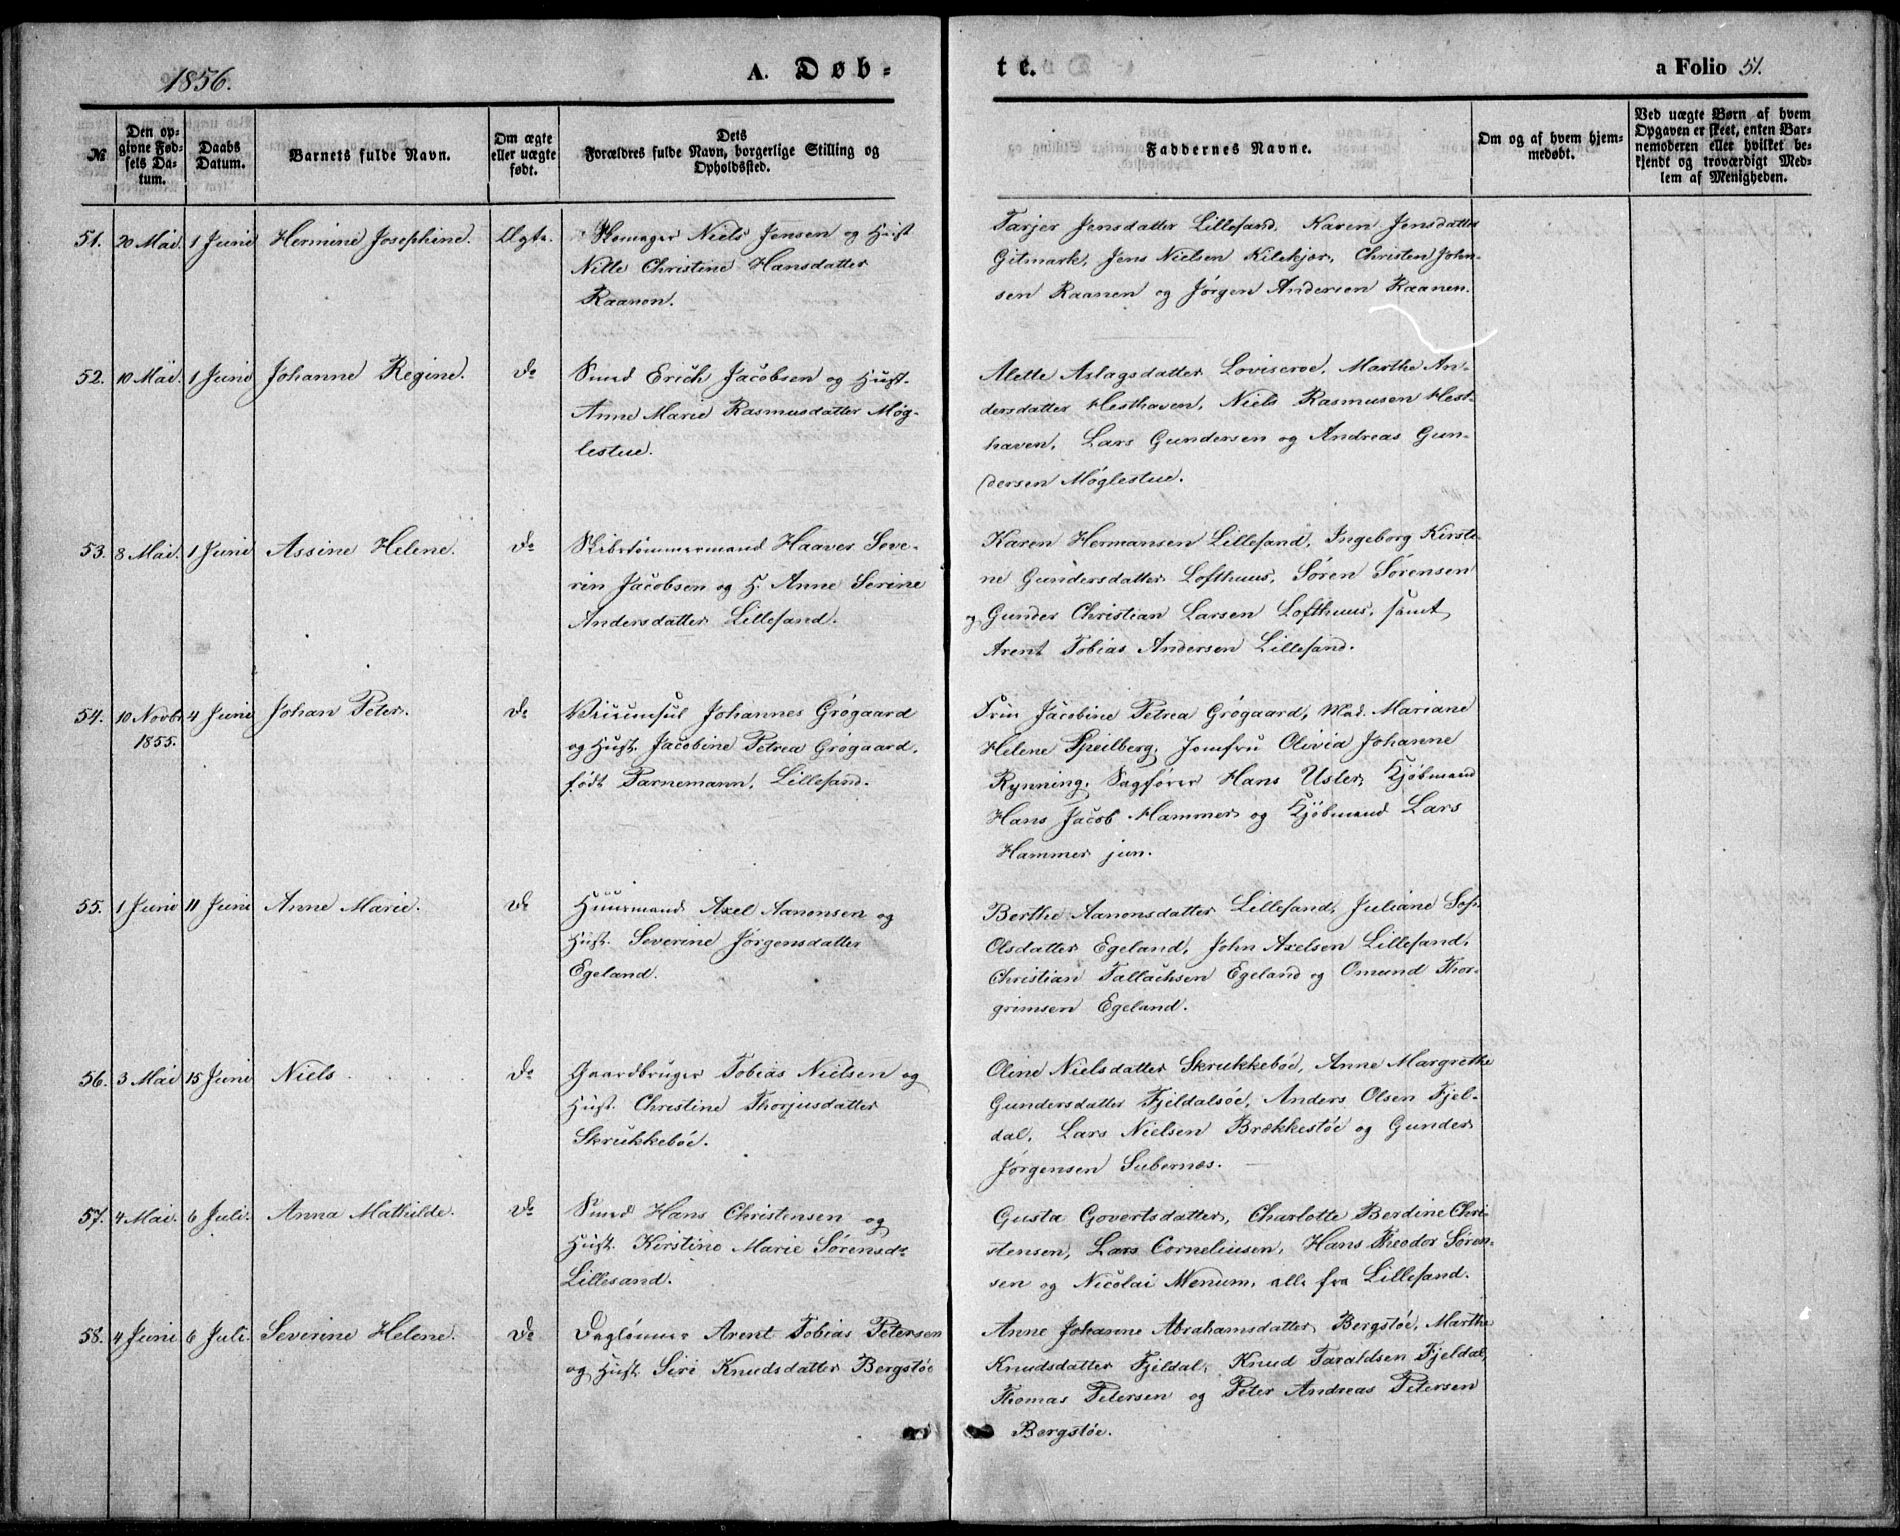 1856.
A. Døb-
te.
a Folio 51.
№
Den op-
givne Fød-
sels Da-
tum.
Daabs
Datum.
Barnets fulde Navn.
Om ægte
eller uægte
født.
Dets
Forældres fulde Navn, borgerlige Stilling og
Opholdssted.
Faddernes Navne.
Om og af hvem hjem-
medøbt.
Ved uægte Børn af hvem
Opgaven er skeet, enten Bar-
nemoderen eller hvilket be-
kjendt og troværdigt Med-
lem af Menigheden.
51. 20 Mai. 1 Juni Hermine Josephine. Ægte. Skomager Niels Jensen og Hust
Nille Christine Hansdatter
Raanen.
Tarjer Jensdatter Lillesand, Karen Jensdatter
Gitmark, Jens Nielsen Kilekjær, Christen John-
sen Raanen og Jørgen Andersen Raanen.
52. 10 Mai. 1 Juni Johanne Regine. Do Smed Erich Jacobsen og Hust.
Anne Marie Rasmusdatter Møg-
lestue.
Alette Aslagsdatter Loviseroe, Marthe An-
dersdatter Hesthaven, Niels Rasmusen Hest-
haven, Lars Gundersen og Andreas Gun-
dersen Møglestue.
53. 8 Mai. 1 Juni Assine Helene. Do Skibstømmermand Haaver Seve-
rin Jacobsen og H. Anne Serine
Andersdatter Lillesand.
Karen Hermansen Lillesand, Ingeborg Kirsti-
ne Gundersdatter Lofthuus, Søren Sørensen
og Gunder Christian Larsen Lofthuus, samt
Arent Tobias Andersen Lillesand.
54. 10 Novbr 4 Juni Johan Peter. Do Viceconsul Johannes Grøgaard
1855.
og Hust. Jacobine Petrea Grøgaard,
født Parnemann, Lillesand.
Fru Jacobine Petrea Grøgaard, Mad. Mariane
Helene Speilberg, Jomfru Olivia Johanne
Rynning, Sagfører Hans Usler, Kjøbmand
Hans Jacob Hammer og Kjøbmand Lars
Hammer jun.
55. 1 Juni 11 Juni Anne Marie. Do Huusmand Axel Aanonsen og
Hust. Severine Jørgensdatter
Egeland.
Berthe Aanonsdatter Lillesand, Juliane Sof.
Olsdatter Egeland, John Axelsen Lillesand,
Christian Tallachsen Egeland og Omund Thor-
grimsen Egeland.
56. 3 Mai 15 Juni Niels Do Gaardbruger Tobias Nielsen og
Hust. Christine Thorjusdatter
Skrukkebøe.
Oline Nielsdatter Skrukkebøe, Anne Margrethe
Gundersdatter Fjeldalsøe, Anders Olsen Fjel-
dal, Lars Nielsen Brækkestøe og Gunder
Jørgensen Subernæs.
57. 4 Mai. 6 Juli. Anna Mathilde. Do Smed Hans Christensen og
Hust. Kirstine Marie Sørensdr
Lillesand.
Gusta Govertsdatter, Charlotte Berdine Chri-
stensen, Lars Corneliusen, Hans Theodor Søren-
sen og Nicolai Menum, alle fra Lillesand.
58. 4 Juni 6 Juli. Severine Helene. Do Daglønner Arent Tobias Petersen
og Hust. Siri Knudsdatter Bergstøe
Anne Johanne Abrahamsdatter Bergstøe, Marthe
Knudsdatter Fjeldal, Knud Taraldsen Fjeldal,
Thomas Petersen og Peter Andreas Petersen
Bergstøe.